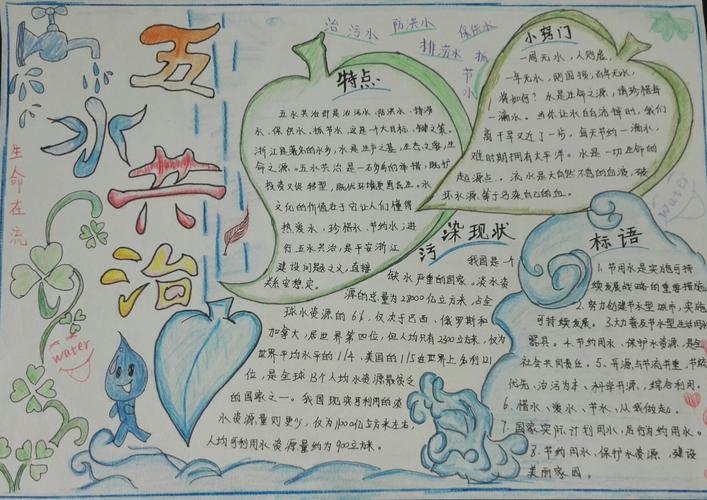 五水共治
生命在流
water
治污水
防洪水
排涝水
保供水
抓节水
特点:
五水共治即是治污水、防洪水、排涝
水、保供水、抓节水,这是一个大目标,
浙江是著名的水乡,水是生产之基,生态之要,生
命之源。五水共治是一石多鸟的举措,既扩
投资又促转型,既优环境更惠民生。水
文化的价值在于它让人们懂得
热爱水,珍惜水,节约水;进
行五水共治,是平安浙江
建设问题之义,直接
关系安稳定。
小窍门
一周无水,人则危,
一年无水,则国损,百年无水,
将如何?水是生命之源,请珍惜每
一滴水。当你让水白白流掉时,我们
离干旱又近了一步,每天节约一滴水,
难时期拥有太平洋。水是一切生命的
起源点。流水是大自然不息的血液,破
坏水源等于污染自己的血。
water
污染现状
我国是一个
缺水严重的国家。淡水资
源的总量为28000亿立方米,占全
球水资源的6%,仅次于巴西、俄罗斯和
加拿大,居世界第四位,但人均只有2300立方米,仅为
世界平均水平的1/4、美国的1/5,在世界上名列121
位,是全球13个人均水资源最贫乏
的国家之一。我国现实可利用的淡
水资源量则更少,仅为11000亿立方米左右,
人均可利用水资源量约为900立方米。
标语
1.节用水是实施可持
续发展战略的重要措施
2.努力创建节水型城市,实施
可持续发展。3.大力普及节水型生活用水
器具。4.节约用水、保护水资源,是全
社会共同责任。5.开源与节流并重,节流
优先、治污为本、科学开源、综合利用。
6.惜水、爱水、节水,从我做起。
7.国家实际计划用水,厉行节约用水。
8.节约用水,保护水资源,建设
美丽家园。